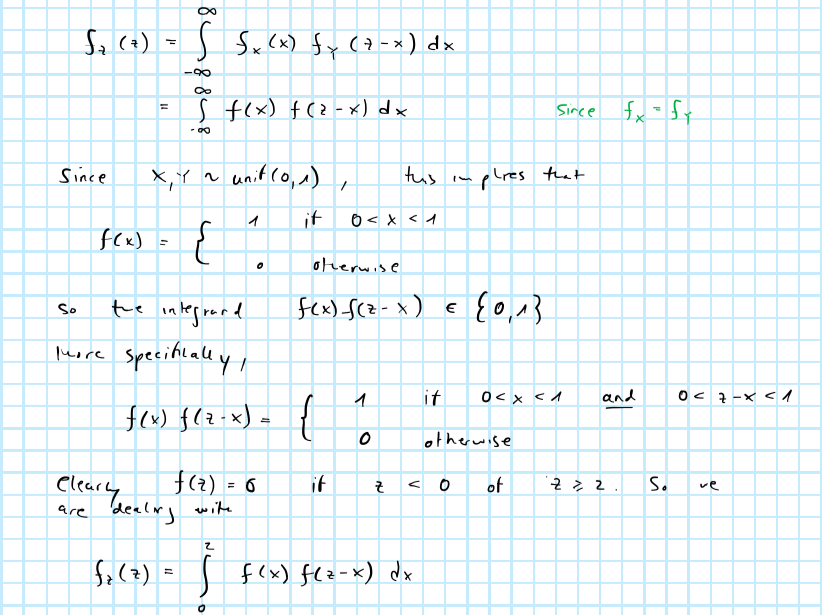 f_z(z) = ∫_{-∞}^{∞} f_x(x) f_Y(z-x) dx
= ∫_{-∞}^{∞} f(x) f(z-x) dx since f_X = f_Y
Since X,Y ~ unif(0,1), this implies that
f(x) = { 1 if 0 < x < 1
0 otherwise
so the integrand f(x) f(z-x) ∈ {0,1}
More specifically,
f(x) f(z-x) = { 1 if 0 < x < 1 and 0 < z-x < 1
0 otherwise
Clearly f(z) = 0 if z < 0 of z ≥ 2. So we
are dealing with
f_z(z) = ∫_0^2 f(x) f(z-x) dx